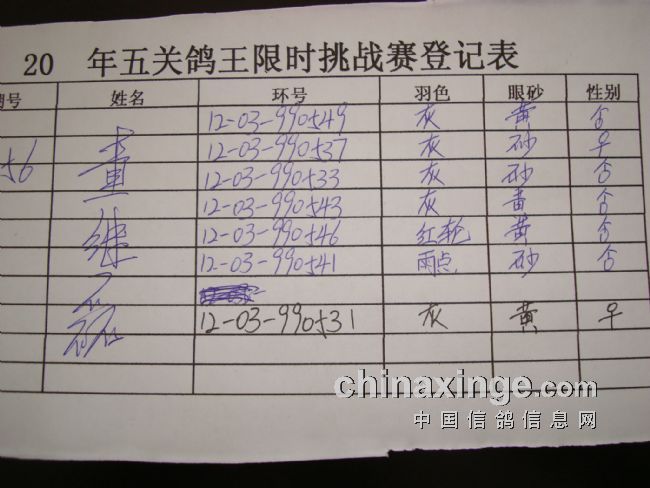 20 年五关鸽王限时挑战赛登记表
号 姓名 环号 羽色 眼砂 性别
12-03-990549 灰 黄
56 12-03-990537 灰 砂 早
董 12-03-990533 灰 砂
12-03-990543 灰 黄
继 12-03-990546 红轮 黄
12-03-990541 雨点 砂
12-03-990531 灰 黄
chinaxinge.com
中国信鸽信息网